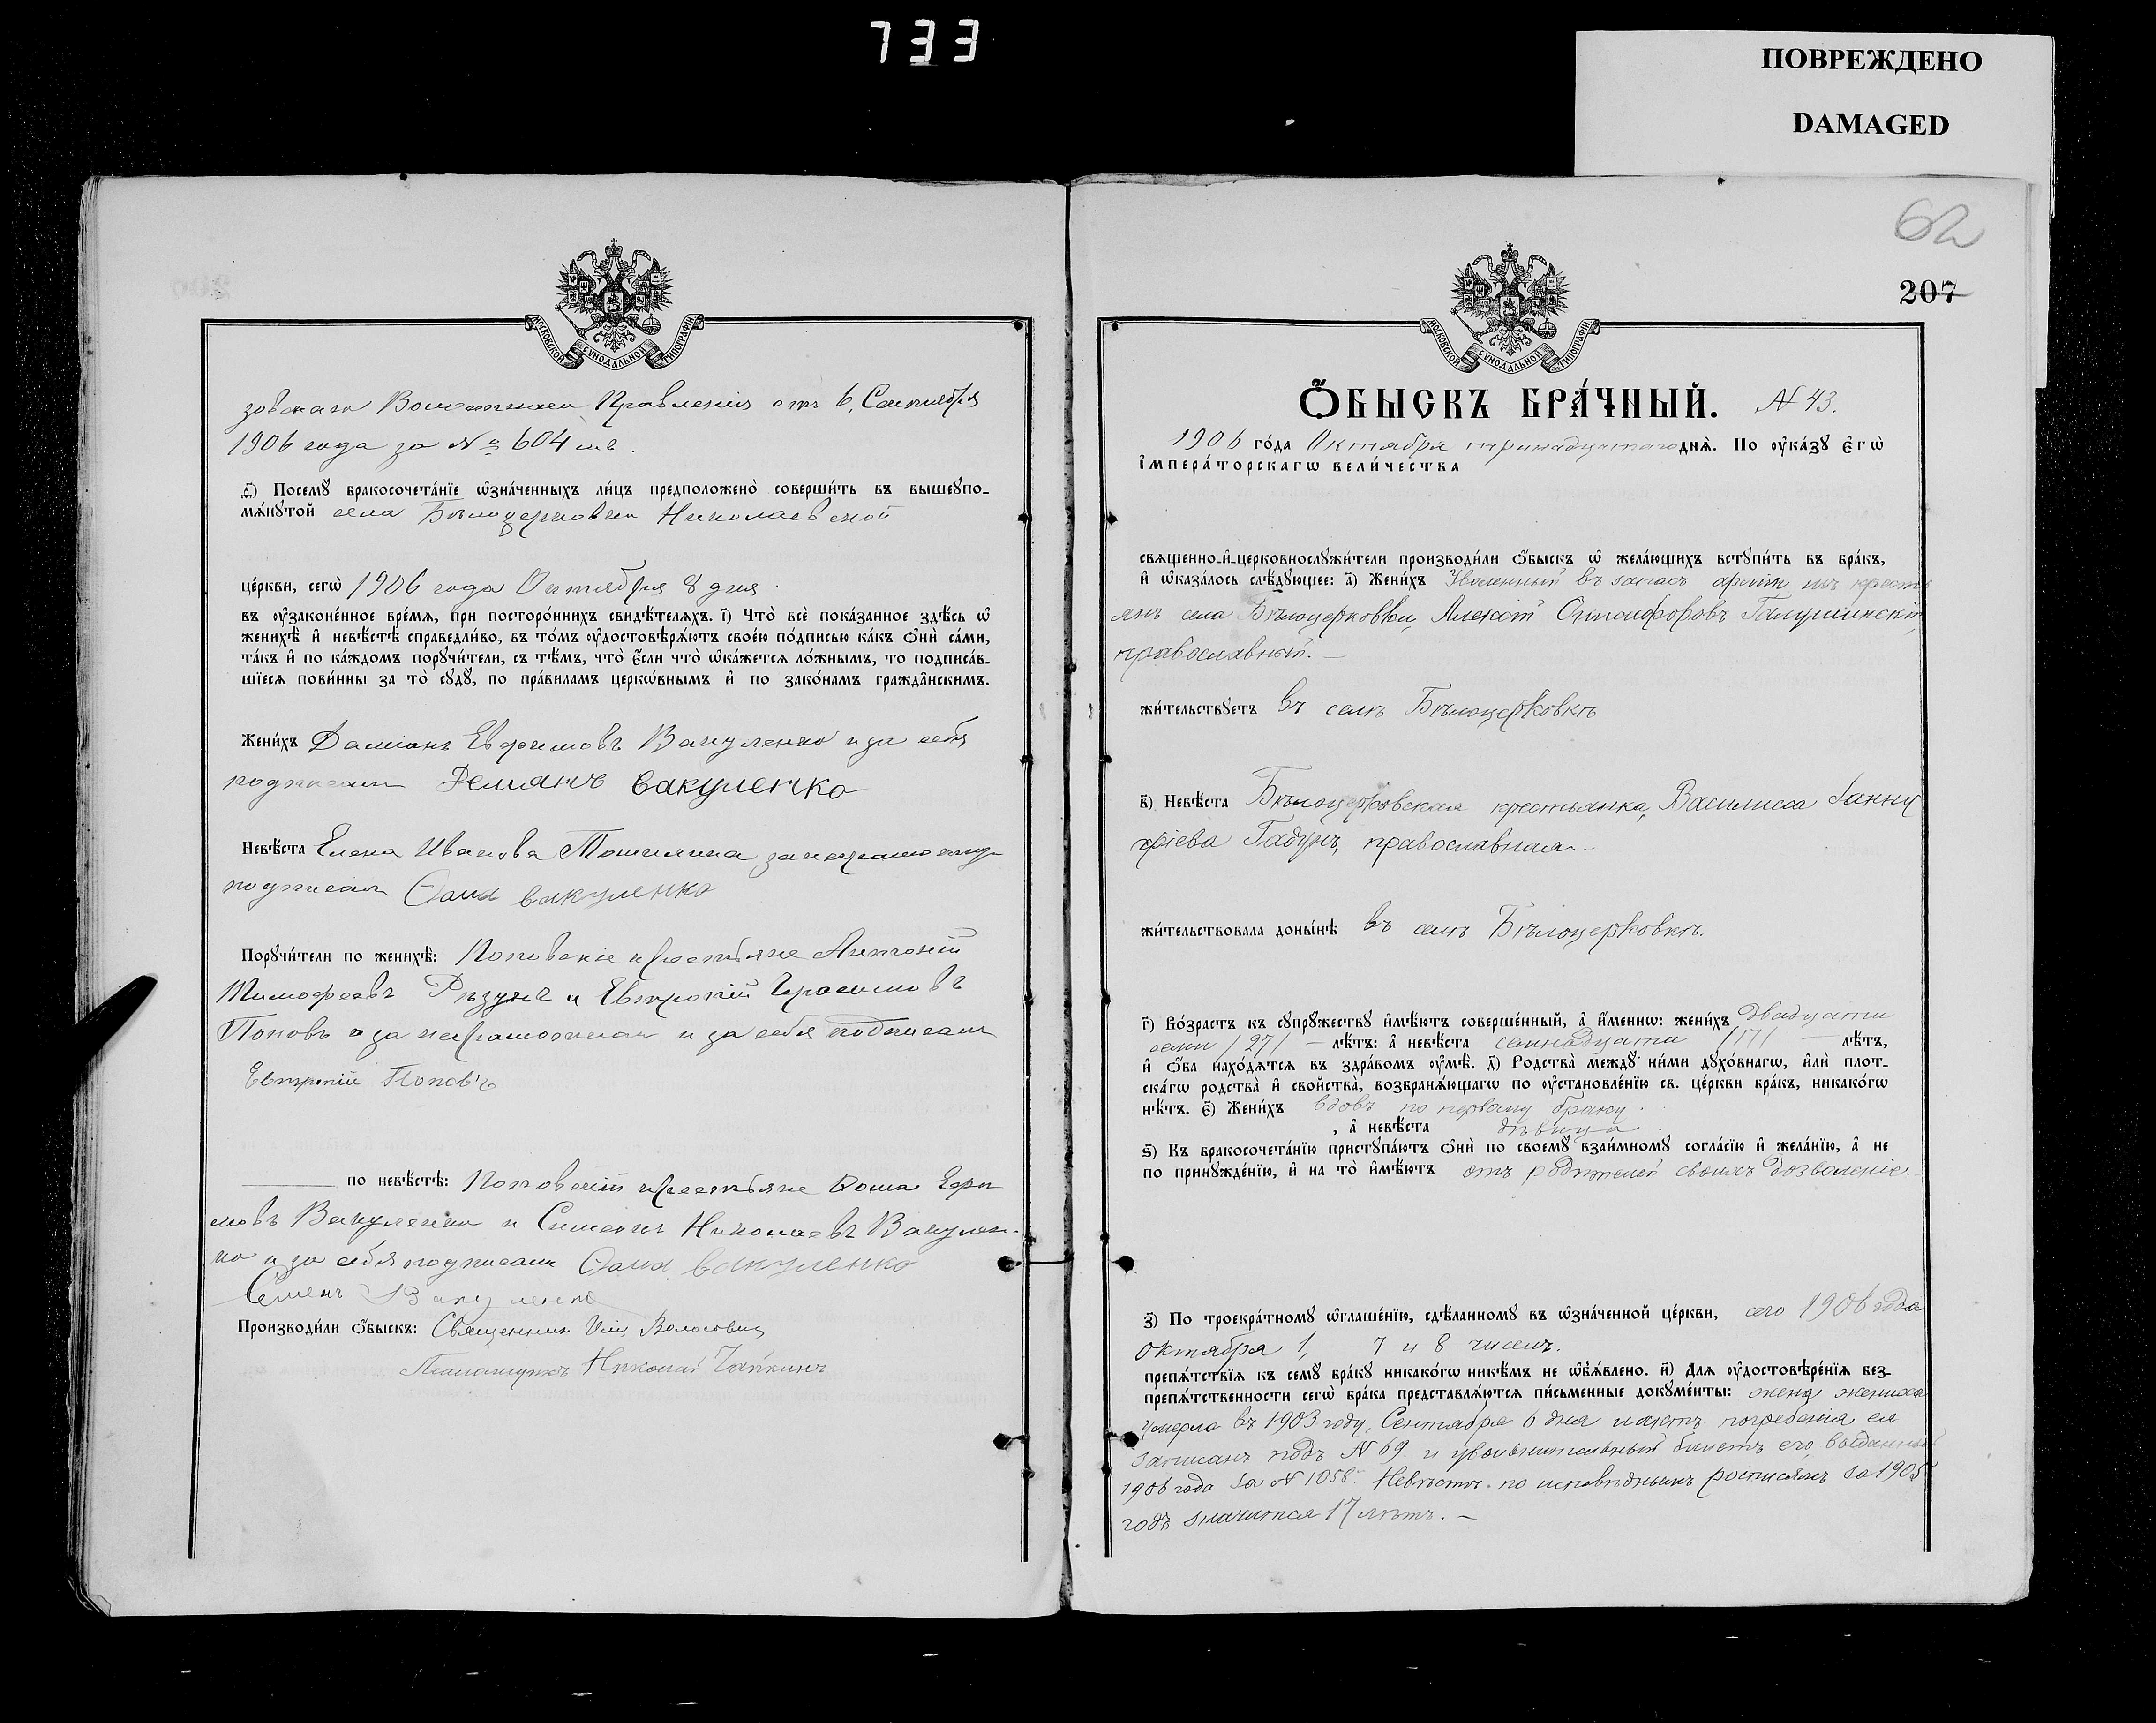 733
ПОВРЕЖДЕНО
DAMAGED
МОСКОВСКОЙ СУНОДАЛЬНОЙ ТИПОГРАФІИ
зовскаго Волостнаго Правленія отъ 6, Сентября
1906 года за № 604 мъ.
ѳ҃) Посемꙋ бракосочета́нїе ѡ҆зна́ченныхъ ли́цъ предположено̀ соверши́ть въ вышеꙋпо-
мѧ́нꙋтой села Бѣлоцерковки Николаевской
це́ркви, сегѡ̀ 1906 года Октября 8 дня
въ ᲂу҆зако́не́нное вре́мѧ, при посторо́ннихъ свидѣ́телѧхъ. і҃) Что̀ всѐ пока́занное здѣ́сь ѡ҆
женихѣ̀ и҆ невѣ́стѣ справедли́во, въ то́мъ ᲂу҆достовѣрѧ́ютъ свое́ю по́дписью ка́къ ѻ҆нѝ са́ми,
та́къ и҆ по ка́ждомъ порꙋчи́тели, съ тѣ́мъ, что̀ є҆́сли что̀ ѡ҆ка́жетсѧ ло́жнымъ, то подписа́в-
шїесѧ пови́нны за то̀ сꙋдꙋ̀, по пра́виламъ церкѡ́внымъ и҆ по зако́намъ гражда̑нскимъ.
Жени́хъ Даміанъ Евфимовъ Вакуленко и за себя
подписал Демянъ вакуленко
Невѣ́ста Елена Иванова
подписал Ѳома вакуленко
Порꙋчи́тели по женихѣ̀: Поповскіе крестьяне Антоній
Тимофеевъ Рѣзунъ и Евтропій Герасимовъ
Поповъ и за неграмотнаго и за себя подписалъ
Евтропій Поповъ
по невѣ́стѣ: Поповскій крестьяне Ѳома Ефи
мовъ Вакуленко и Симеонъ Николаевъ Вакулен-
ко и за себя подписали Ѳома вакуленко
Семенъ Вакуленко
Производи́ли ѻ҆́быскъ: Священник Волосовичъ
Псаломщикъ Николай Чайкинъ
62
207
МОСКОВСКОЙ СУНОДАЛЬНОЙ ТИПОГРАФІИ
Ѻ҆́БЫСКЪ БРА́ЧНЫЙ. № 43.
1906 го́да Октября тринадцатаго днѧ̀. По ᲂу҆ка́зꙋ є҆гѡ̀
і҆мпера́торскагѡ вели́чества
свѧще́нно-и҆-церковнослꙋжи́тели производи́ли ѻ҆́быскъ ѡ҆ жела́ющихъ встꙋпи́ть въ бра́къ,
и҆ ѡ҆каза́лось слѣ́дꙋющее: а҃) Жени́хъ Уволенный въ запасъ арміи изъ кресть
янъ села Бѣлоцерковки, Алексѣй Онисифоровъ
православный. —
жи́тельствꙋетъ въ селѣ Бѣлоцерковкѣ
в҃) Невѣ́ста Бѣлоцерковская крестьянка, Василисса Іанну
аріева Гадунъ, православная.
жи́тельствовала доны́нѣ въ селѣ Бѣлоцерковкѣ.
г҃) Во́зрастъ къ сꙋпрꙋ́жествꙋ и҆мѣ́ютъ соверше́нный, а҆ и҆́меннѡ: жени́хъ двадцати
семи /27/ — лѣ́тъ: а҆ невѣ́ста семнадцати /17/ — лѣ́тъ,
и҆ ѻ҆́ба нахо́дѧтсѧ въ здра́вомъ ᲂу҆мѣ̀. д҃) Родства̀ междꙋ̀ ни́ми дꙋхо́внагѡ, и҆лѝ плот-
ска́гѡ родства̀ и҆ свойства̀, возбранѧ́ющагѡ по ᲂу҆становле́нїю св. це́ркви бра́къ, никако́гѡ
нѣ́тъ. є҃) Жени́хъ вдовъ по первому браку.
, а҆ невѣ́ста дѣвица.
ѕ҃) Къ бракосочета́нїю пристꙋпа́ютъ ѻ҆нѝ по своемꙋ̀ взаи́мномꙋ согла́сїю и҆ жела́нїю, а҆ не
по принꙋжде́нїю, и҆ на то̀ и҆мѣ́ютъ отъ родителей своихъ дозволеніе.
з҃) По троекра́тномꙋ ѡ҆глаше́нїю, сдѣ́ланномꙋ въ ѡ҆зна́ченной це́ркви, сего 1906 года
октября 1, 7 и 8 чиселъ.
препѧ́тствїѧ къ семꙋ̀ бра́кꙋ никако́гѡ никѣ́мъ не ѡ҆б̾ѧ́влено. и҃) Длѧ ᲂу҆достовѣре́нїѧ без-
препѧ́тственности сегѡ̀ бра́ка представлѧ́ютсѧ пи́сьменные докꙋме́нты: жена жениха
умерла въ 1903 году, Сентября 6 дня и актъ погребенія ея
записанъ подъ № 69. и увольнительный билетъ его, выданный
1906 года за № 1058. Невѣстѣ по исповѣднымъ росписямъ за 1905
годъ значится 17 лѣтъ. —